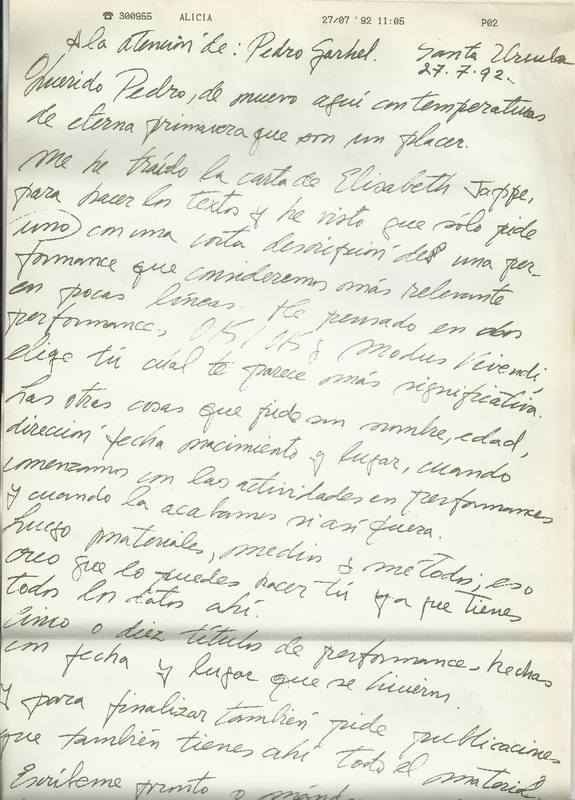 ☎ 300955 ALICIA 27/07 '92 11:05 P02
A la atención de: Pedro Garhel. Santa Ursula
27.7.92.
Querido Pedro, de nuevo aquí con temperaturas
de eterna primavera que son un placer.
Me he traído la carta de Elisabeth Jappe,
para hacer los textos y he visto que sólo pide
uno con una corta descripsión de una per-
formance que consideremos más relevante
en pocas líneas. He pensado en dos
performances, y Modus Vivendi
elige tú cual te parece más significativa.
Las otras cosas que pide son nombre, edad,
dirección fecha nacimiento y lugar, cuando
comenzamos con las actividades en performances
y cuando la acabamos si así fuera.
Luego materiales, medios y métodos; eso
creo que lo puedes hacer tú ya que tienes
todos los datos ahí.
Cinco o diez títulos de performances hechas
con fecha y lugar que se hicieron.
y para finalizar también pide publicaciones
que también tienes ahí todo el material.
Escríbeme pronto o